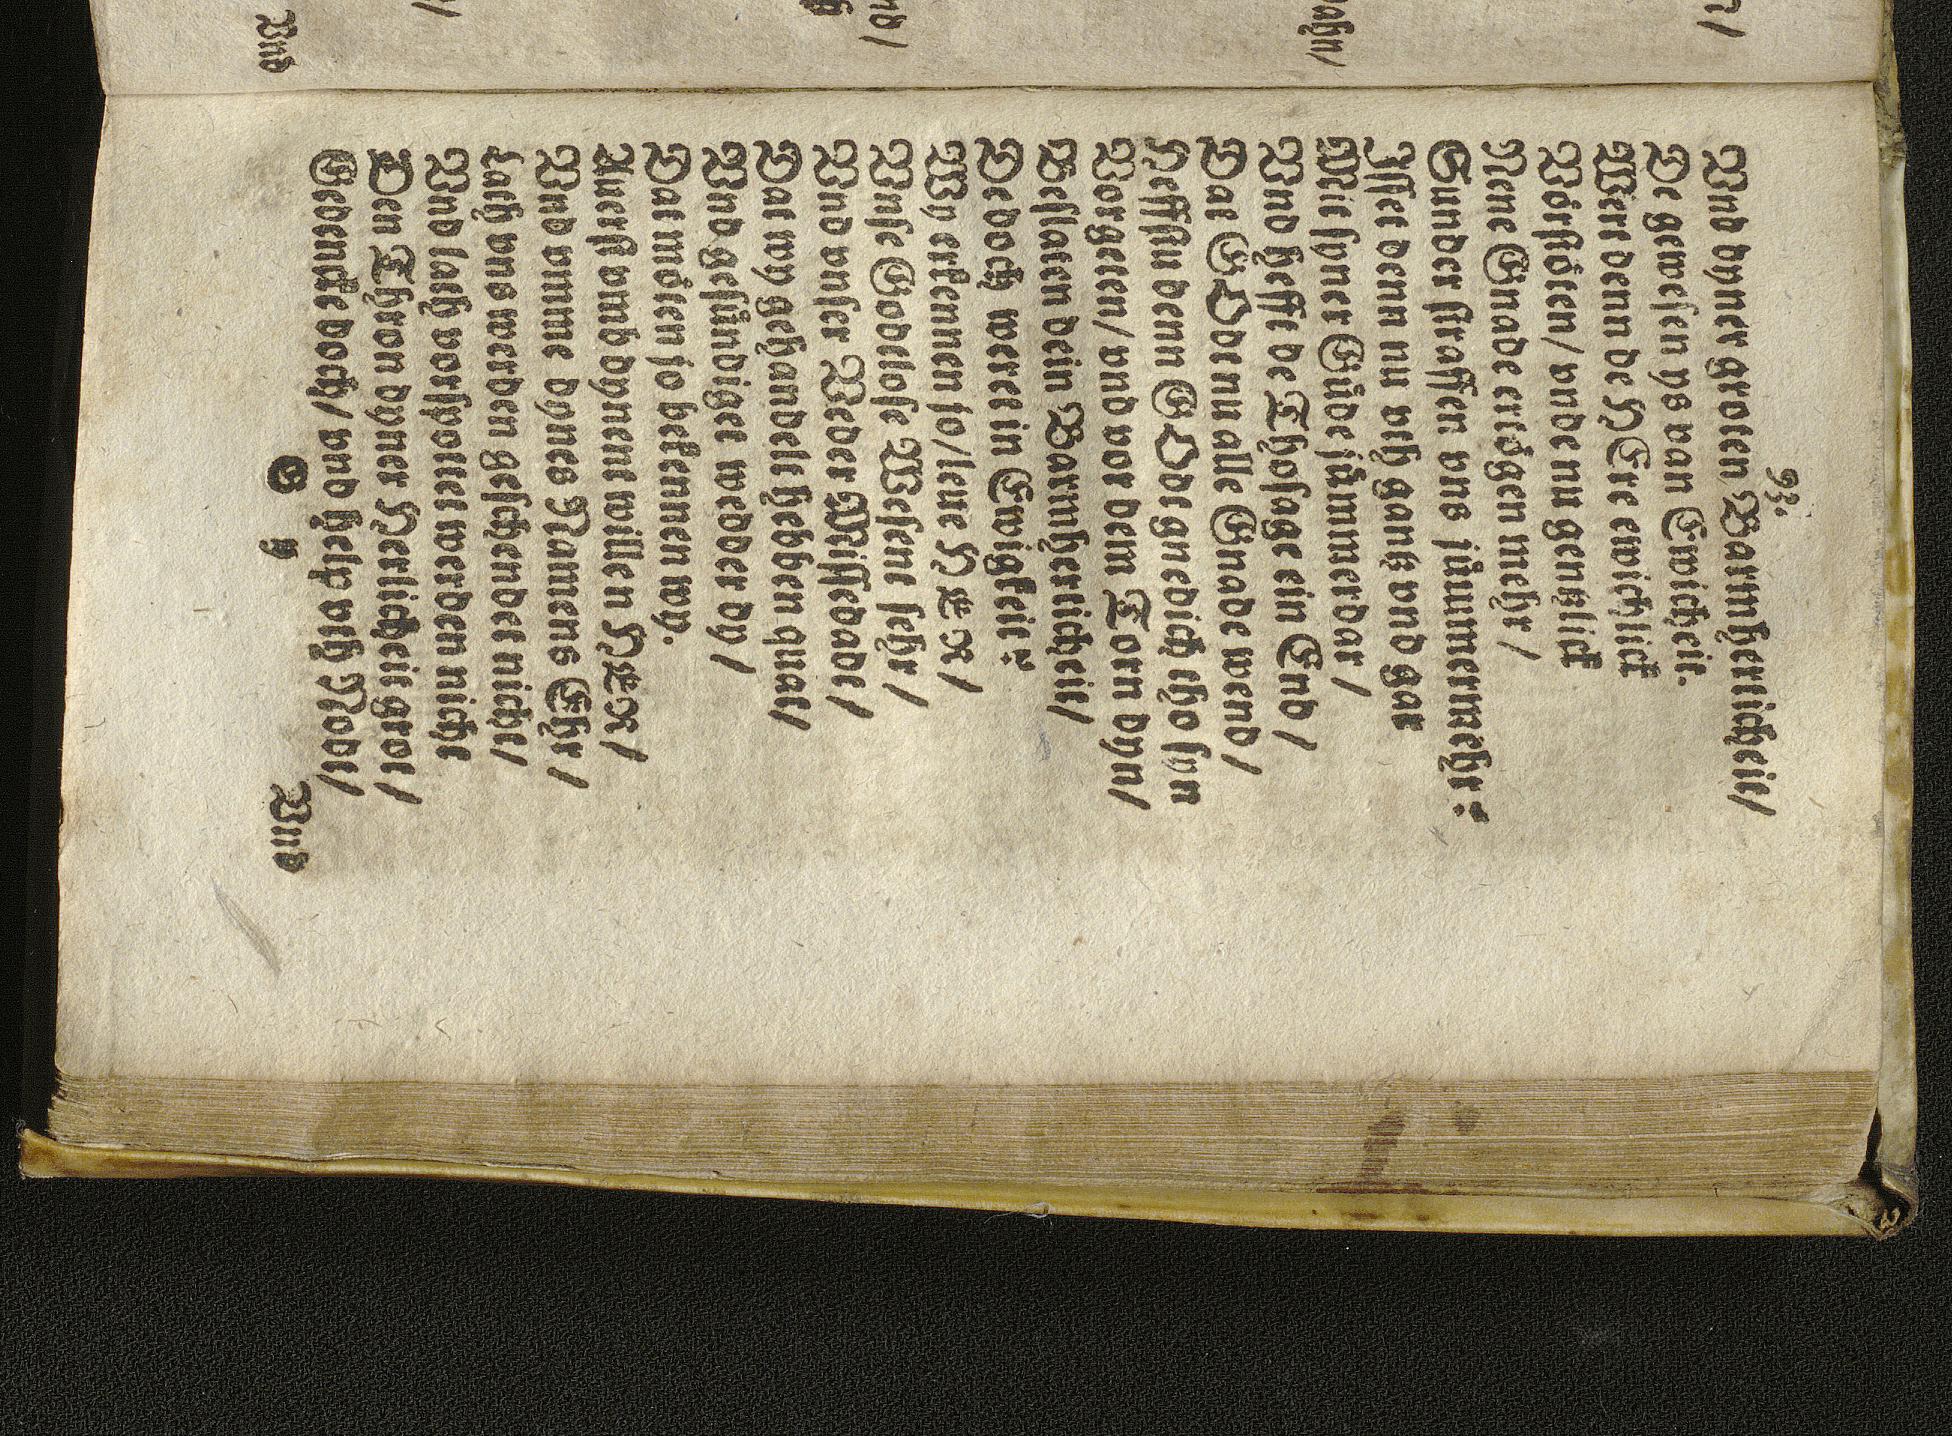 93.
Vnd dyner groten Barmherticheit/
De gewesen ys van Ewicheit.
Wert denn de HERE ewichlick
Vörstöten/ vnde nu gentzlick
Nene Gnade ertögen mehr/
Sunder straffen vns jümmermehr?
Isset denn nu vth gantz vnd gar
Mit syner Güde jümmerdar/
Vnd hefft de Thosage ein End/
Dat GOdt nu alle Gnade wend/
Hefft denn GOdt gnedich tho syn
Vorgeten/ vnd vor dem Torn dyn/
Beslaten dein Barmherticheit/
Dedoch weret in Ewigkeit?
Wy erkennen jo/ leue HERR/
Vnse Godtlose Wesent sehr/
Vnd vnser Veder Missedadt/
Dat wy gehandelt hebben quat/
Vnd gesündiget wedder dy/
Dat möten jo bekennen wy.
Auerst vmb dynent willen HERR/
Vnd vmme dynes Namens Ehr/
Lath vns werden geschendet nicht/
Vnd lath vorhönet werden nicht
Den Thron dyner Herlicheit grot/
Gedencke doch/ vnd help vth Nodt/
G v Vnd